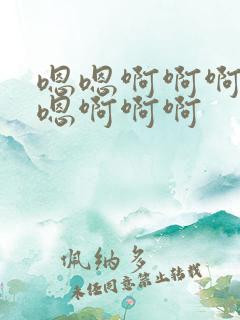 嗯嗯啊啊啊
嗯啊啊啊
佩纳多
未经同意禁止转载